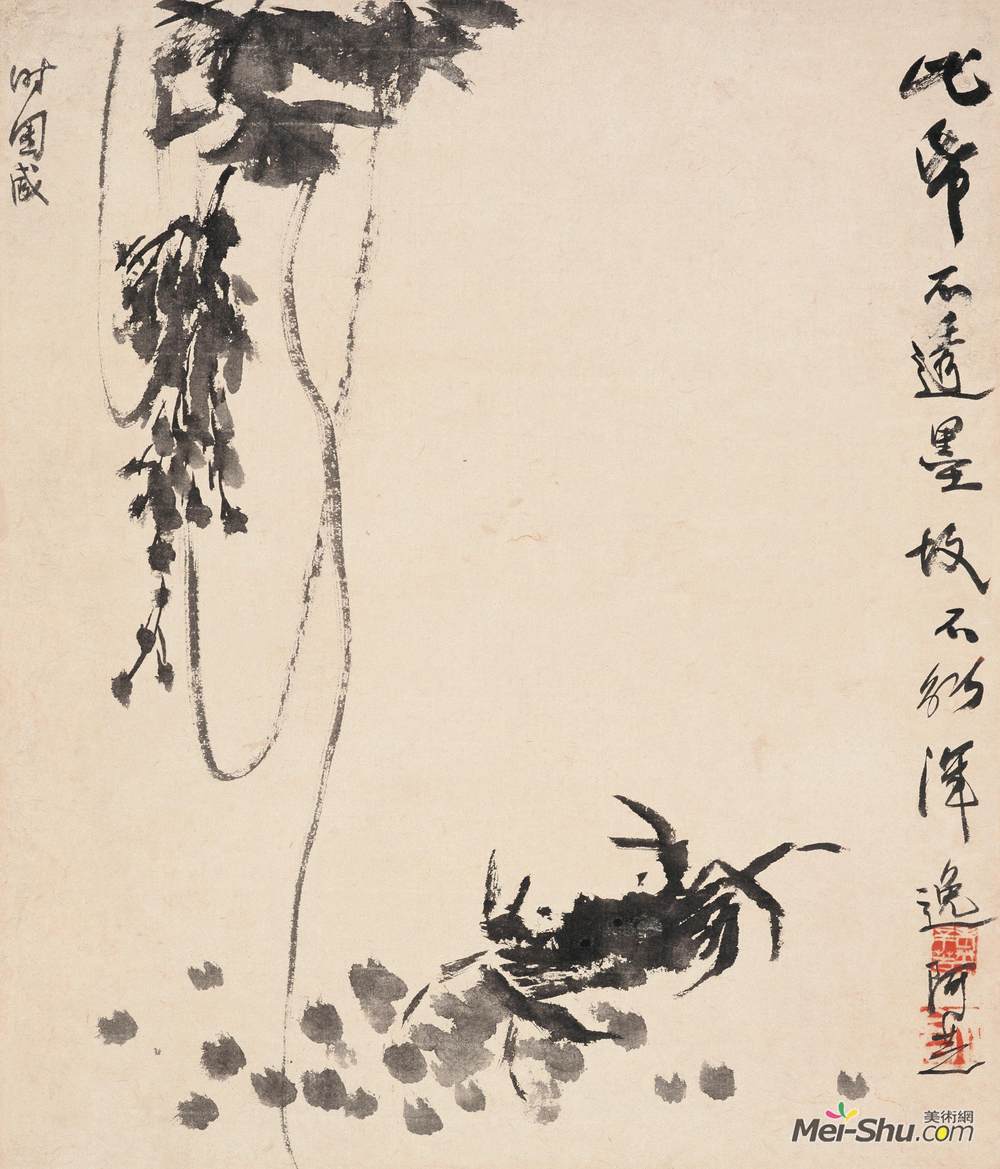 此帋不透墨故不能渾逸阿芝
时 咸
美術網
Mei-Shu.com